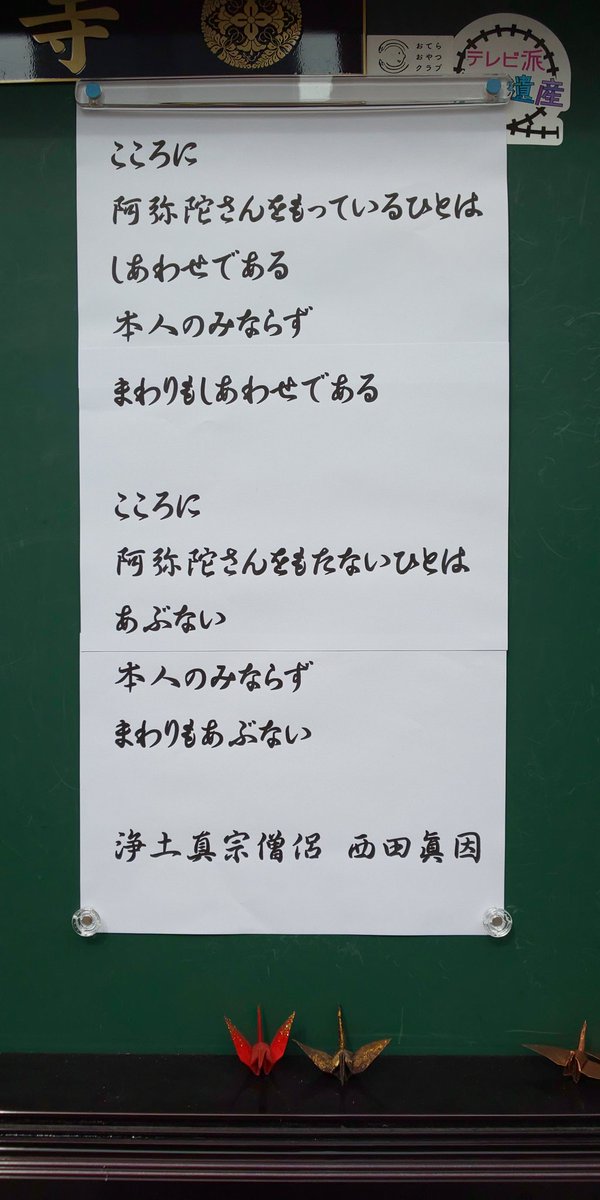 寺
おてら
おやつ
クラブ
テレビ派
遺産
こころに
阿弥陀さんをもっているひとは
しあわせである
本人のみならず
まわりもしあわせである
こころに
阿弥陀さんをもたないひとは
あぶない
本人のみならず
まわりもあぶない
浄土真宗僧侶 西田眞因